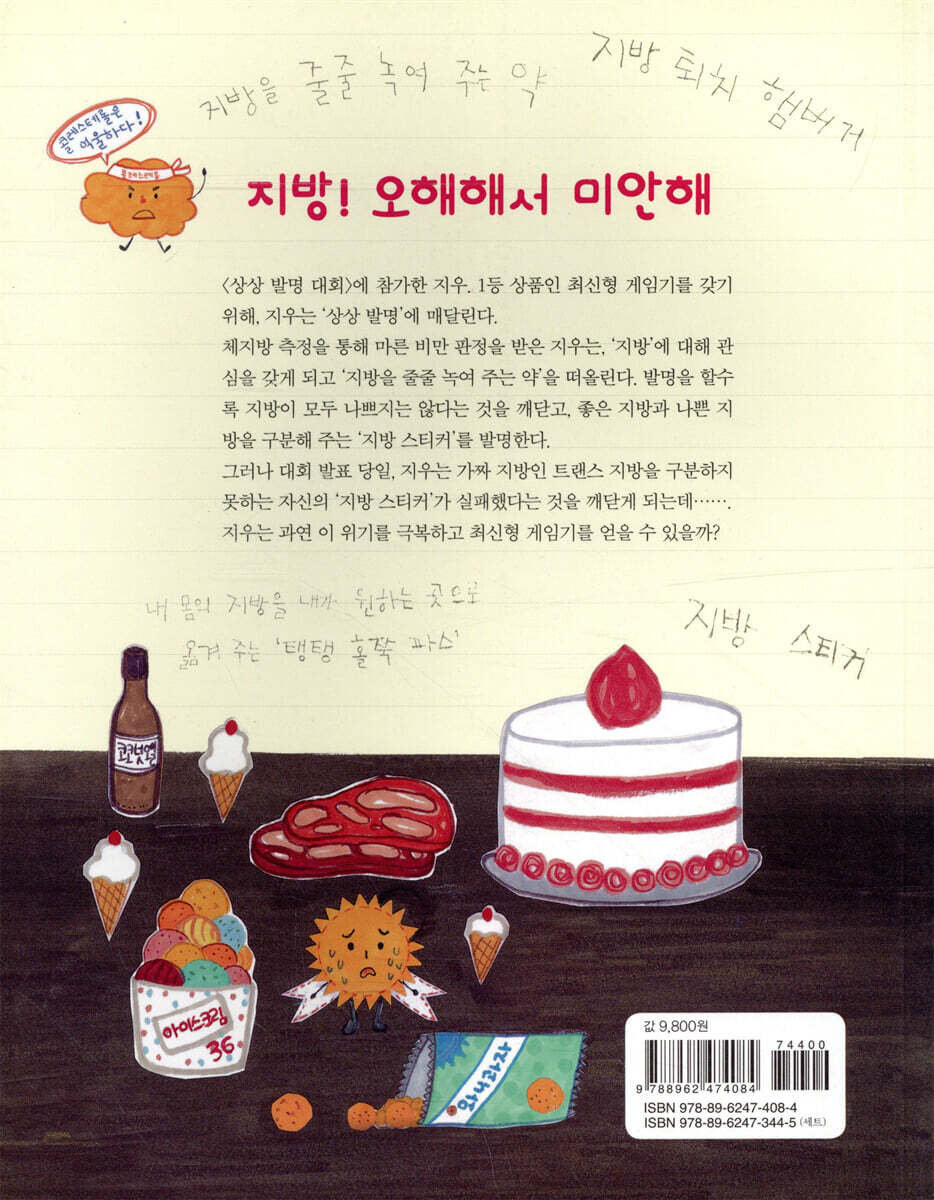 지방을 줄줄 녹여 주는 약
지방 퇴치 햄버거
콜레스테롤은
억울하다!
콜레스테롤
지방! 오해해서 미안해
〈상상 발명 대회〉에 참가한 지우. 1등 상품인 최신형 게임기를 갖기
위해, 지우는 ‘상상 발명’에 매달린다.
체지방 측정을 통해 마른 비만 판정을 받은 지우는, ‘지방’에 대해 관
심을 갖게 되고 ‘지방을 줄줄 녹여 주는 약’을 떠올린다. 발명을 할수
록 지방이 모두 나쁘지는 않다는 것을 깨닫고, 좋은 지방과 나쁜 지
방을 구분해 주는 ‘지방 스티커’를 발명한다.
그러나 대회 발표 당일, 지우는 가짜 지방인 트랜스 지방을 구분하지
못하는 자신의 ‘지방 스티커’가 실패했다는 것을 깨닫게 되는데…….
지우는 과연 이 위기를 극복하고 최신형 게임기를 얻을 수 있을까?
내 몸의 지방을 내가 원하는 곳으로
옮겨 주는 ‘탱탱 홀쭉 파스’
지방 스티커
코코넛오일
아이스크림
36
값 9,800원
74400
9 788962 474084
ISBN 978-89-6247-408-4
ISBN 978-89-6247-344-5 (세트)